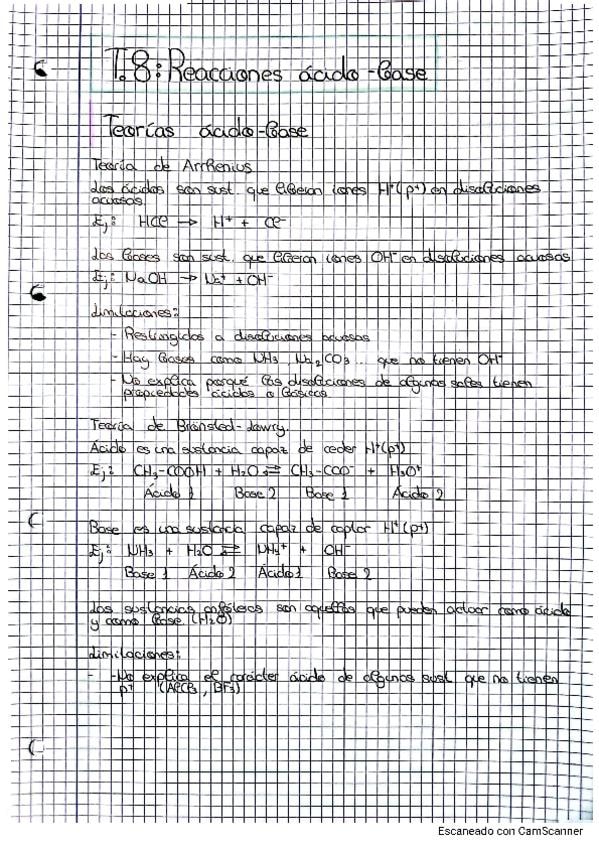 T.8: Reacciones ácido-base
Teorías ácido-base
Teoría de Arrhenius
Los ácidos son sust. que liberan iones H⁺(p⁺) en disoluciones
acuosas.
Ej: HCl → H⁺ + Cl⁻
Las bases son sust. que liberan iones OH⁻ en disoluciones acuosas
Ej: NaOH → Na⁺ + OH⁻
Limitaciones:
- Restringidos a disoluciones acuosas
- Hay bases como NH3, Na2CO3... que no tienen OH⁻
- No explica porqué las disoluciones de algunas sales tienen
propiedades ácidas o básicas.
Teoría de Brönsted-Lowry.
Ácido es una sustancia capaz de ceder H⁺(p⁺)
Ej: CH3-COOH + H2O ⇌ CH3-COO⁻ + H3O⁺
Ácido 1 Base 2 Base 1 Ácido 2
Base es una sustancia capaz de captar H⁺(p⁺)
Ej: NH3 + H2O ⇌ NH4⁺ + OH⁻
Base 1 Ácido 2 Ácido 1 Base 2
Las sustancias anfóteras son aquellas que pueden actuar como ácido
y como base. (H2O)
Limitaciones:
- -No explica el carácter ácido de algunas sust que no tienen
p⁺ (AlCl3, BF3)
Escaneado con CamScanner